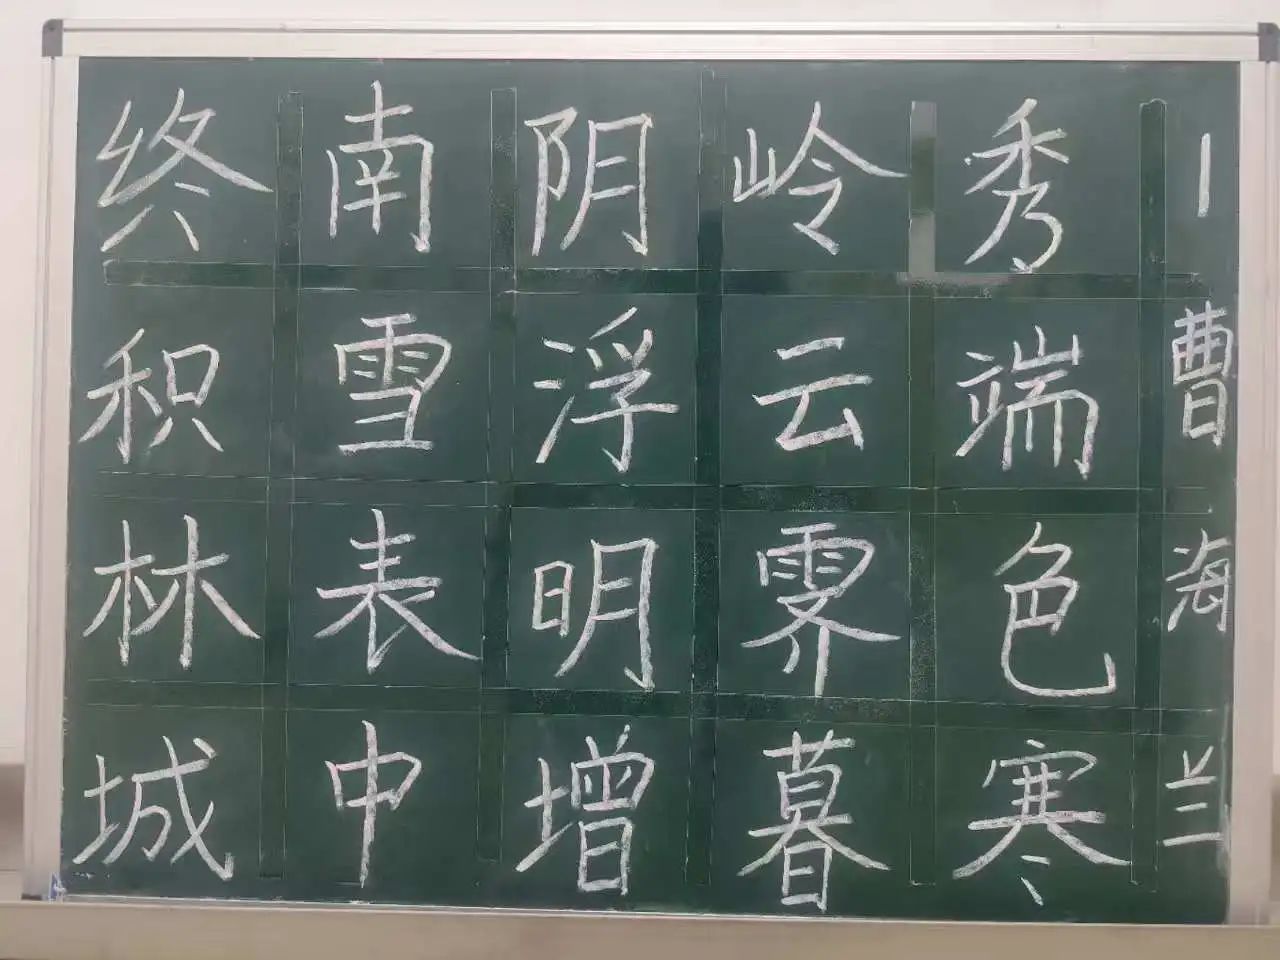 终南阴岭秀
积雪浮云端
林表明霁色
城中增暮寒
丨曹海兰